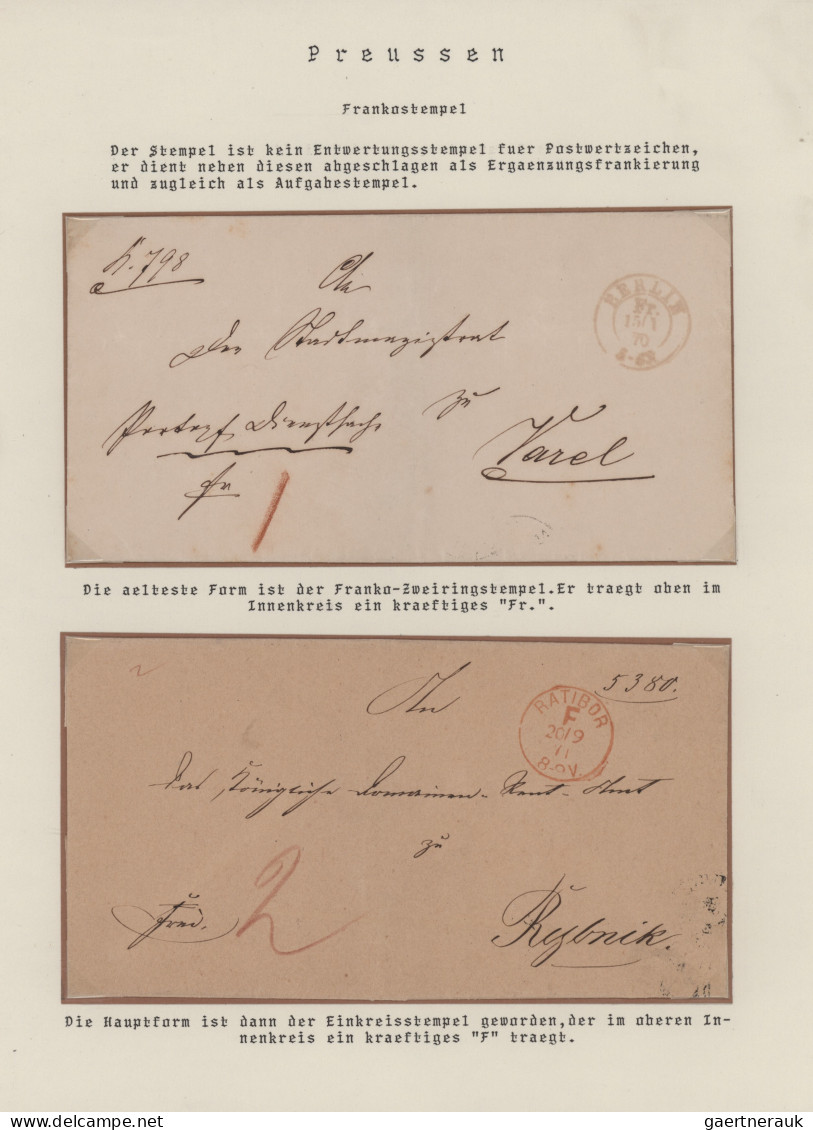 Preussen
Frankostempel
Der Stempel ist kein Entwertungsstempel fuer Postwertzeichen,
er dient neben diesen abgeschlagen als Ergaenzungsfrankierung
und zugleich als Aufgabestempel.
K. 798
An
BERLIN
Fr.
15/1
70
Den Stadtmagistrat
zu
Dienstsache
Varel
fr
1
Die aelteste Form ist der Franko-Zweiringstempel.Er traegt oben im
Innenkreis ein kraeftiges "Fr.".
5380.
An
RATIBOR
F
20/9
71
8-9V.
Das Königliche Domainen-Rent-Amt
zu
Frei.
2
Rybnik.
Die Hauptform ist dann der Einkreisstempel geworden,der im oberen In-
nenkreis ein kraeftiges "F" traegt.
delcampe.net
gaertnerauk